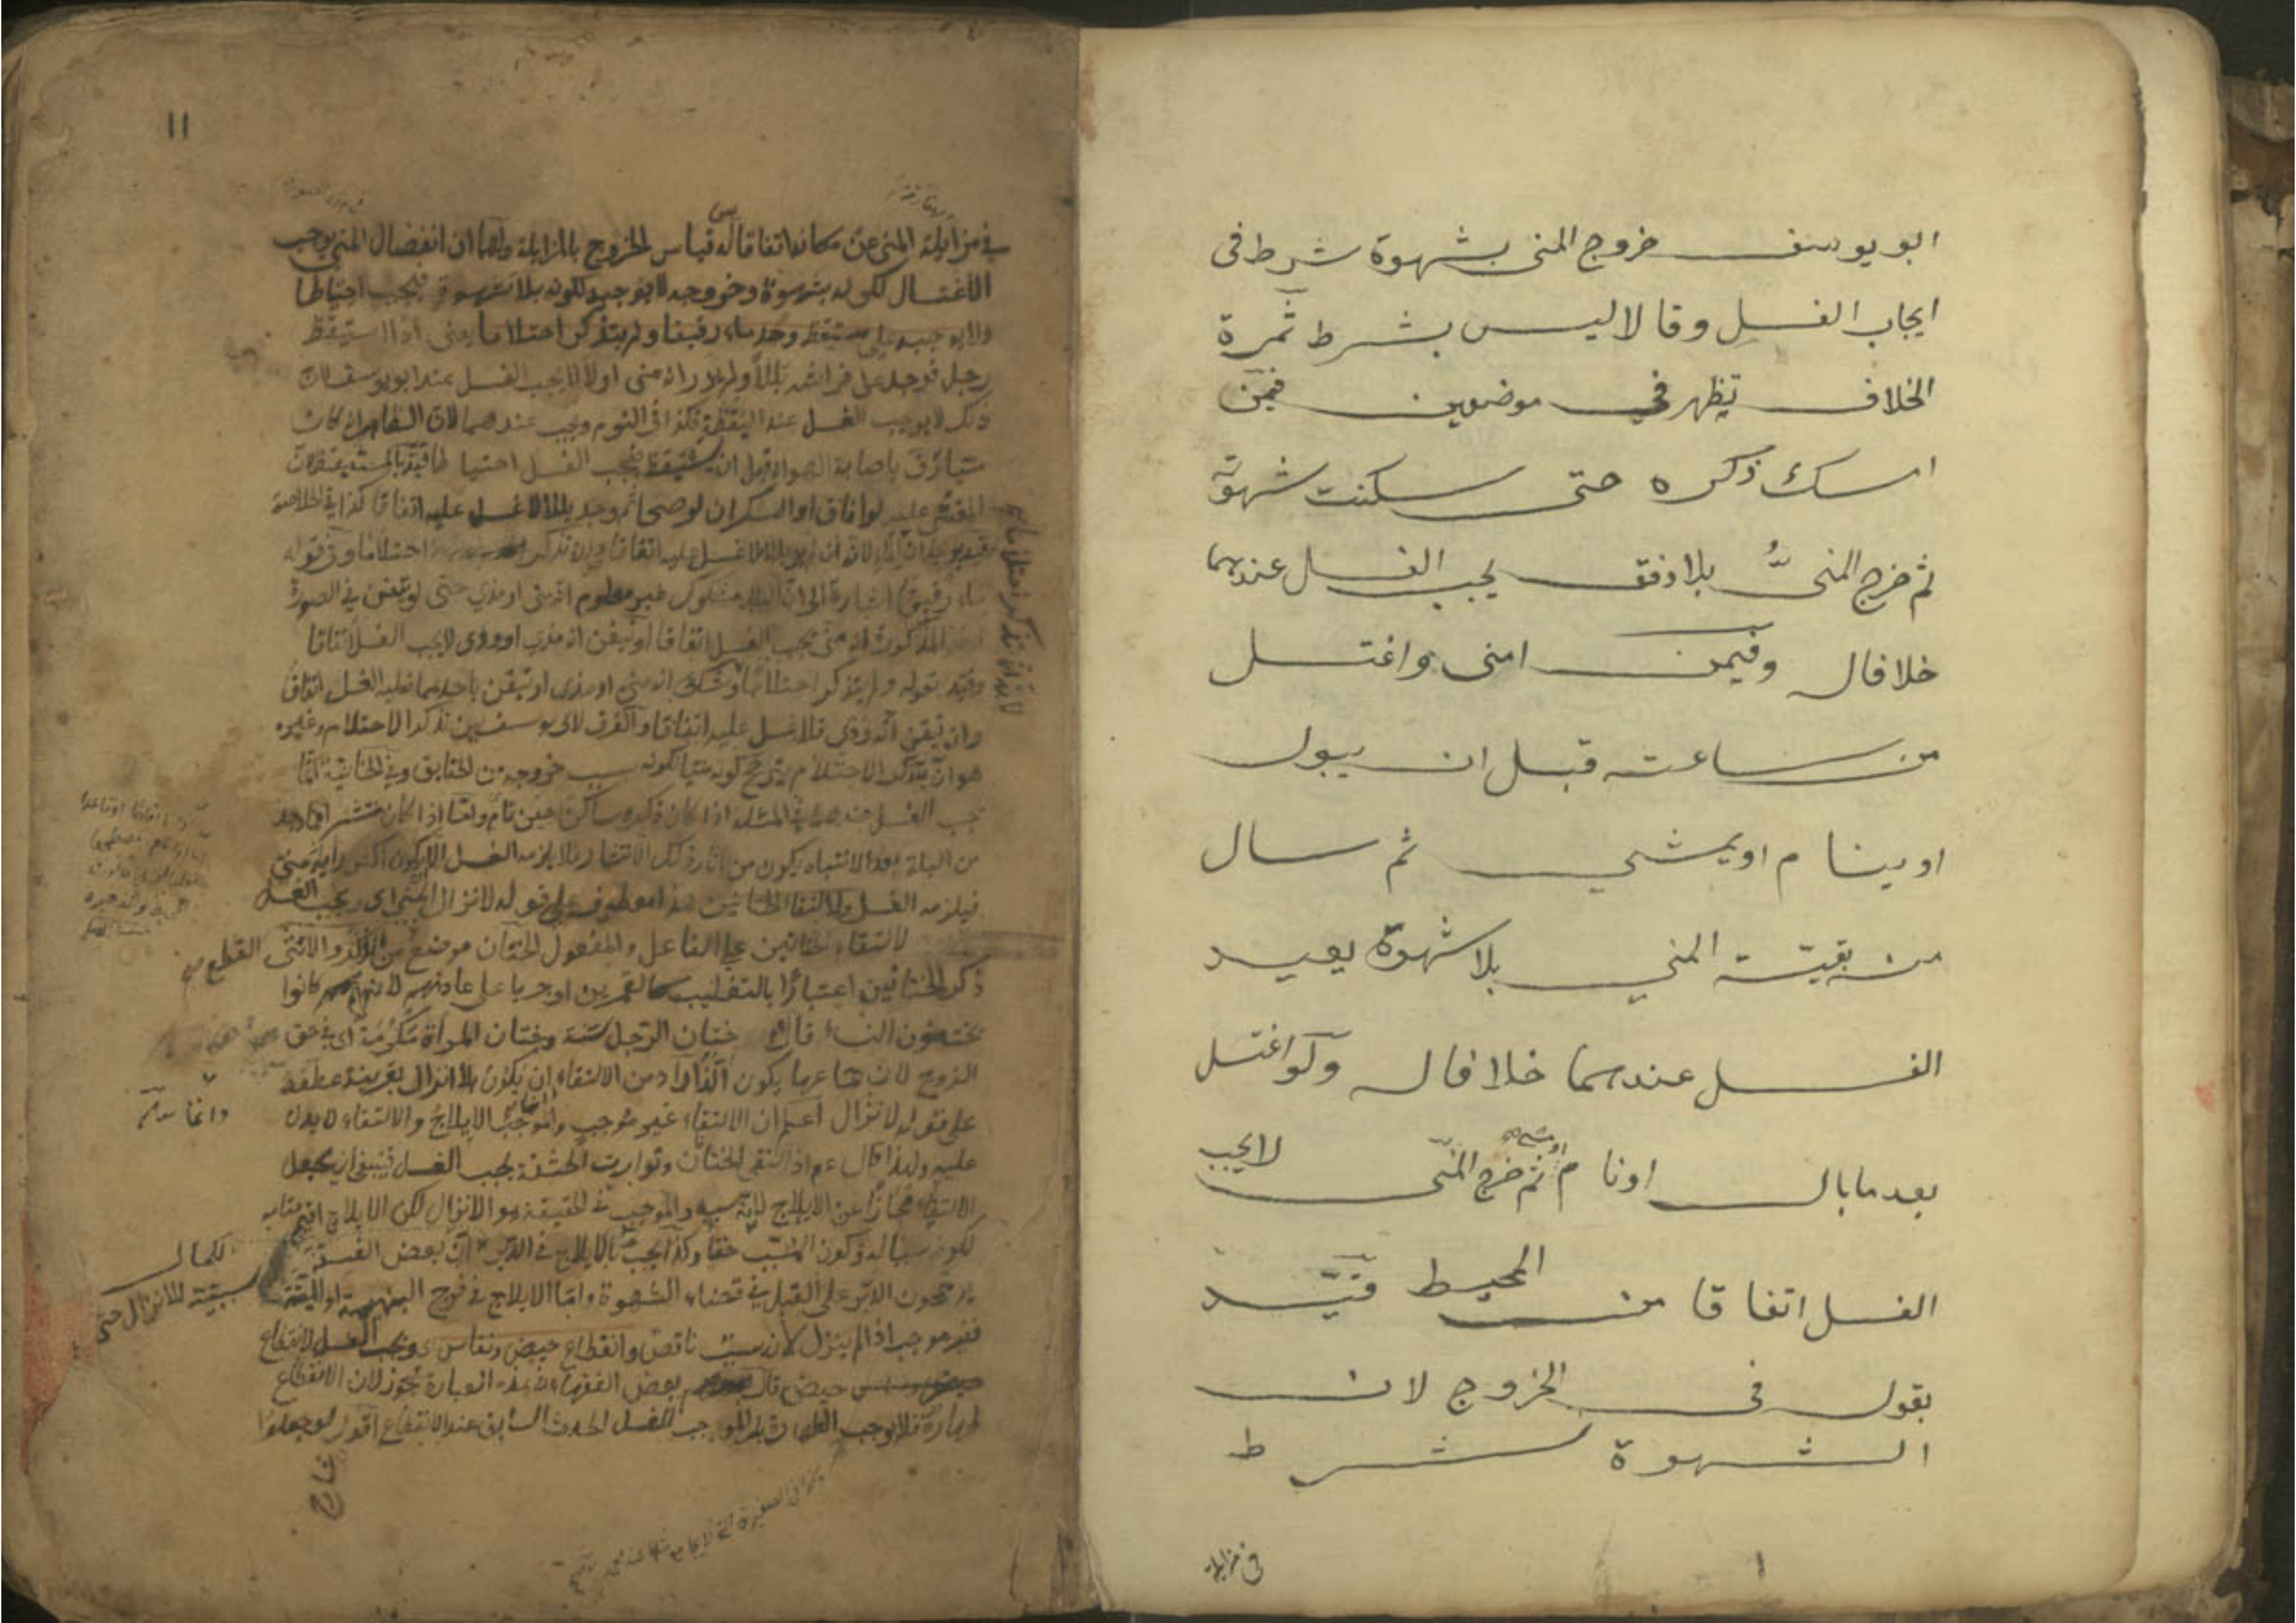 ابو يوسف خروج المنى بشهوة شرط فى
ايجاب الغسل وقالا ليس بشرط ثمرة
الخلاف تظهر في موضعين فيمن
امسك ذكره حتى سكنت شهوته
ثم خرج المنىُّ بلا دفق يجب الغسل عندهما
خلافا له وفيمن امنى واغتسل
من ساعته قبل ان يبول
او ينام او يمشي ثم سال
من بقيّة المني بلا شهوة يعيد
الغسل عندهما خلافا له ولو اغتسل
بعد ما بال او نام او مشى ثم خرج المنى لا يجب
الغسل اتفاقا من المحيط قيّد
بقوله فى الخروج لان
الشهوة شرط
فى مزايلة
١١
في مزايلة المنى عن مكانه اتفاقا له قياس الخروج بالمزايلة ولهما ان انفصال المني يوجب
الاغتسال لكونه بشهوة وخروجه لا يوجبه لكونه بلا شهوة فيجب احتياطا
ولا يوجبه على مستيقظ وجد ماء رقيقا ولم يتذكر احتلاما يعنى اذا استيقظ
رجل فوجد على فراشه بللا ولم يدر انه منى او لا لا يجب الغسل عند ابو يوسف لان
ذلك لا يوجب الغسل عند اليقظة فكذا فى النوم ويجب عندهما لان الظاهر انه كان
منيا رق باصابة الهواء قبل ان يستيقظ فيجب الغسل احتياطا قيد بالمستيقظ لان
المغشى عليه لو افاق او السكران لو صحا ثم وجد بللا لا غسل عليه اتفاقا كذا في الخلاصة
احتلاما وفى قوله
ماء رقيقا اشارة الى ان البلل مشكوك غير معلوم انه منى او مذي حتى لو تيقن في الصورة
المذكورة انه منى يجب الغسل اتفاقا او تيقن انه مذي او ودى لا يجب الغسل اتفاقا
وقيد بقوله ولم يتذكر احتلاما لو شك انه مني او مذى او تيقن باحدهما فعليه الغسل اتفاقا
وان تيقن انه ودى فلا غسل عليه اتفاقا والفرق لابى يوسف بين تذكر الاحتلام وغيره
هو ان بتذكر الاحتلام يترجح كونه منيا لكونه سبب خروجه من الحقايق وفي الخانية انما
يجب الغسل عندهما في المسئلة اذا كان ذكره ساكنا حين نام واما اذا كان منتشرا فما وجد
من البلة بعد الانتباه يكون من اثار ذلك الانتشار فلا يلزمه الغسل الا ان يكون اكبر رايه انه منى
فيلزمه الغسل ولالتقاء الختانين هذا معطوف على قوله لانزال المني اى ويجب الغسل
لالتقاء الختانين على الفاعل والمفعول الختان موضع القطع من الذكر والانثى
ذكر الختانين اعتبارا بالتغليب كالقمرين او جريا على عادتهم لانهم كانوا
يختنون النساء قال ختان الرجل سنة وختان المرأة مكرمة اى في حق
الزوج لان جماعها يكون الذّ المراد من الالتقاء ان يكون بلا انزال بقرينة عطفه
على قوله لانزال اعلم ان الالتقاء غير موجب وانما الموجب الايلاج والالتقاء لا يدل
عليه ولهذا قال عم اذا التقى الختانان وتوارت الحشفة يجب الغسل فينبغى ان يجعل
الالتقاء مجازا عن الايلاج لانه سببه والموجب فى الحقيقة هو الانزال لكن الايلاج اقيم مقامه
لكونه سببا له وكون المسبب خفيا وكذا يجب بالايلاج فى الدبر لان بعض الفسقة
يرجحون الدبر على القبل في قضاء الشهوة واما الايلاج في فرج البهيمة او الميتة
فغير موجب اذا لم ينزل لانه سبب ناقص وانقطاع حيض ونفاس اى ويجب الغسل لانقطاع
حيض قال بعض الفقهاء فى هذه العبارة تجوز لان الانقطاع
طهارة فلا يوجب الطهارة بل الموجب للغسل الحدث السابق عند الانقطاع اقول لو جعلوا
لكمال
سببيته للانزال حتى